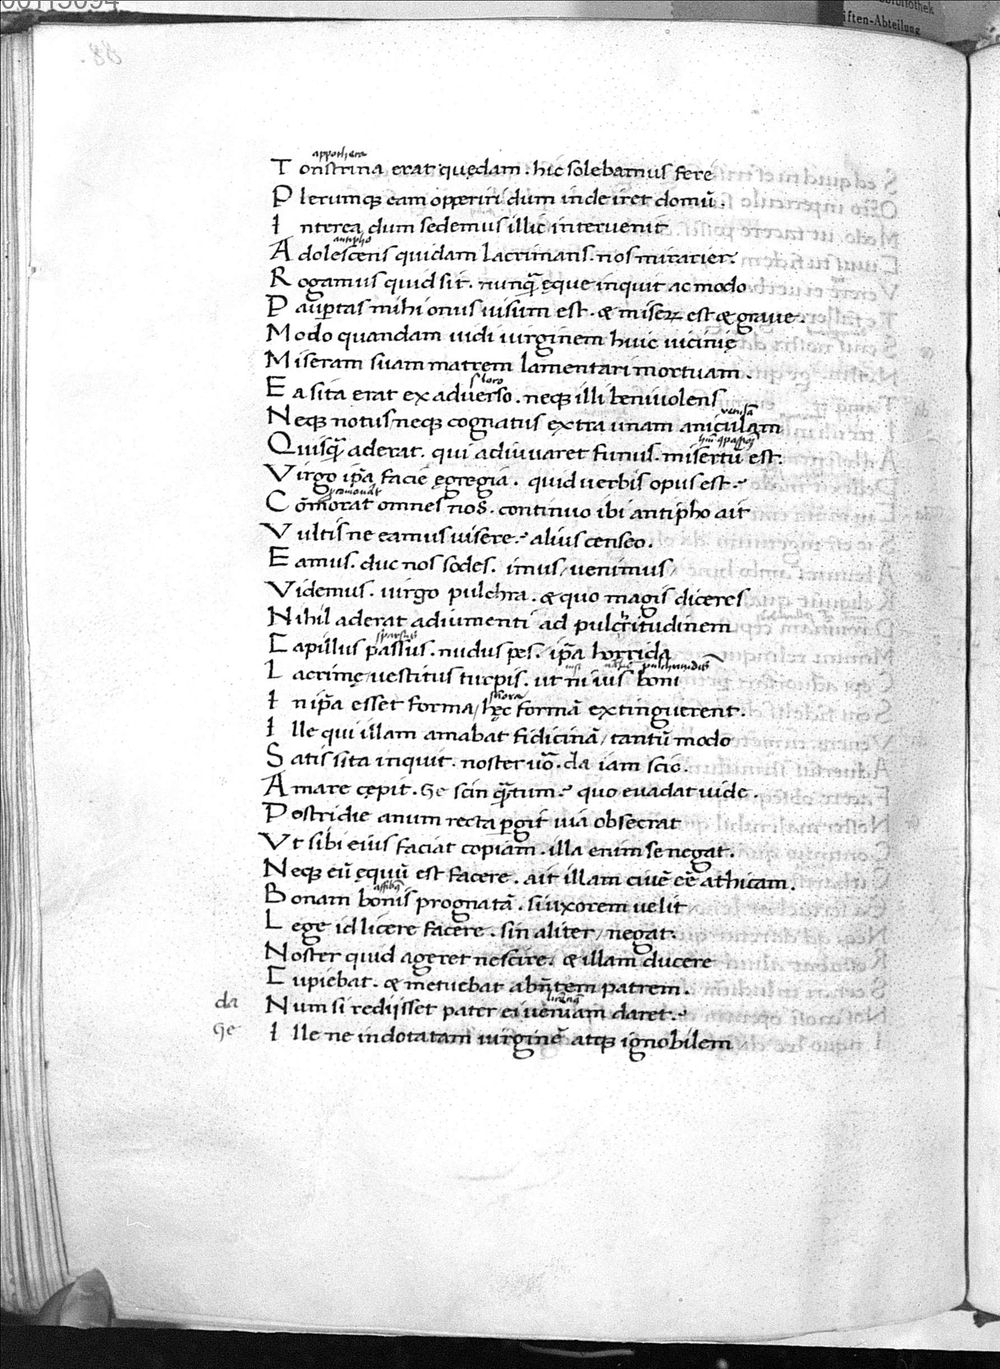 appothera
Tonstrina erat quędam . hic solebamus fere
Plerumq; eam opperiri dum inde iret domū .
Interea dum sedemus illic intervenit
antipho
Adolescens quidam lacrimans . nos mirarier .
Rogamus quid sit . nunq̃ ęque inquit ac modo
Paup̱tas mihi onus visum est . & miserꝝ est & grave .
Modo quandam vidi virginem huic vicinię
Miseram suam matrem lamentari mortuam .
foro
Ea sita erat ex adverso . neq; illi benivolens
Neq; notus neq; cognatus extra unam aniculam
Quisq̃ aderat . qui adiuvaret funus . misertū est .
Virgo ip̄a facie egregia . quid verbis opus est .
Cōmorat omnes nos . continuo ibi antipho ait
Vultis ne eamus visere . alius censeo .
Eamus . duc nos sodes . imus / venimus
Videmus . virgo pulchra . & quo magis diceres
Nihil aderat adiumenti ad pulcritudinem
sparsus
Capillus passus . nudus pes . ip̄a horrida
Lacrimę / vestitus turpis . ut ni vis boni
In ip̄a esset forma / hęc formā extinguerent .
Ille qui illam amabat fidicinā / tantū modo
Satis sita inquit . noster vō . da iam scio .
Amare cępit . Ge scin q̃tum . quo evadat vide .
Postridie anum recta p̱git via obsecrat
Vt sibi eius faciat copiam . illa enim se negat .
Neq; eū ęquū est facere . ait illam civē eē athicam .
Bonam bonis prognatā . si uxorem velit
Lege id licere facere . sin aliter / negat .
Noster quid ageret nescire . & illam ducere
Cupiebat . & metuebat abn̄tem patrem .
da Num si redijsset pater ei veniam daret .
Ge Ille ne indotatam virginē atq; ignobilem